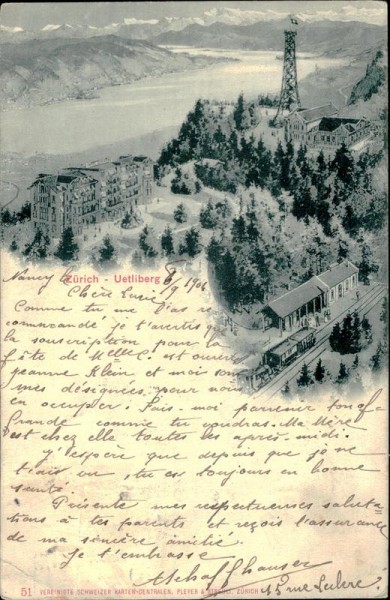 Zürich - Uetliberg
Nancy le 6/9 1906
Chère Lucie
Comme tu me l'as re
commandé, je t'avertis q
la souscription pour la
fête de Melle C. est ouver
Jeanne Klein et moi som
mes désignées pour nous
en occuper. Fais-moi parvenir ton off
rande comme tu voudras. Ma Mère
est chez elle toutes les après-midi.
J'espère que depuis que je ne
t'ai vu, tu es toujours en bonne
santé.
Présente mes respectueuses saluta-
tions à tes parents et reçois l'assurance
de ma sincère amitié.
Je t'embrasse
Aschaffhauser
15 rue Leclerc
51 VEREINIGTE SCHWEIZER KARTEN-CENTRALEN, ZÜRICH